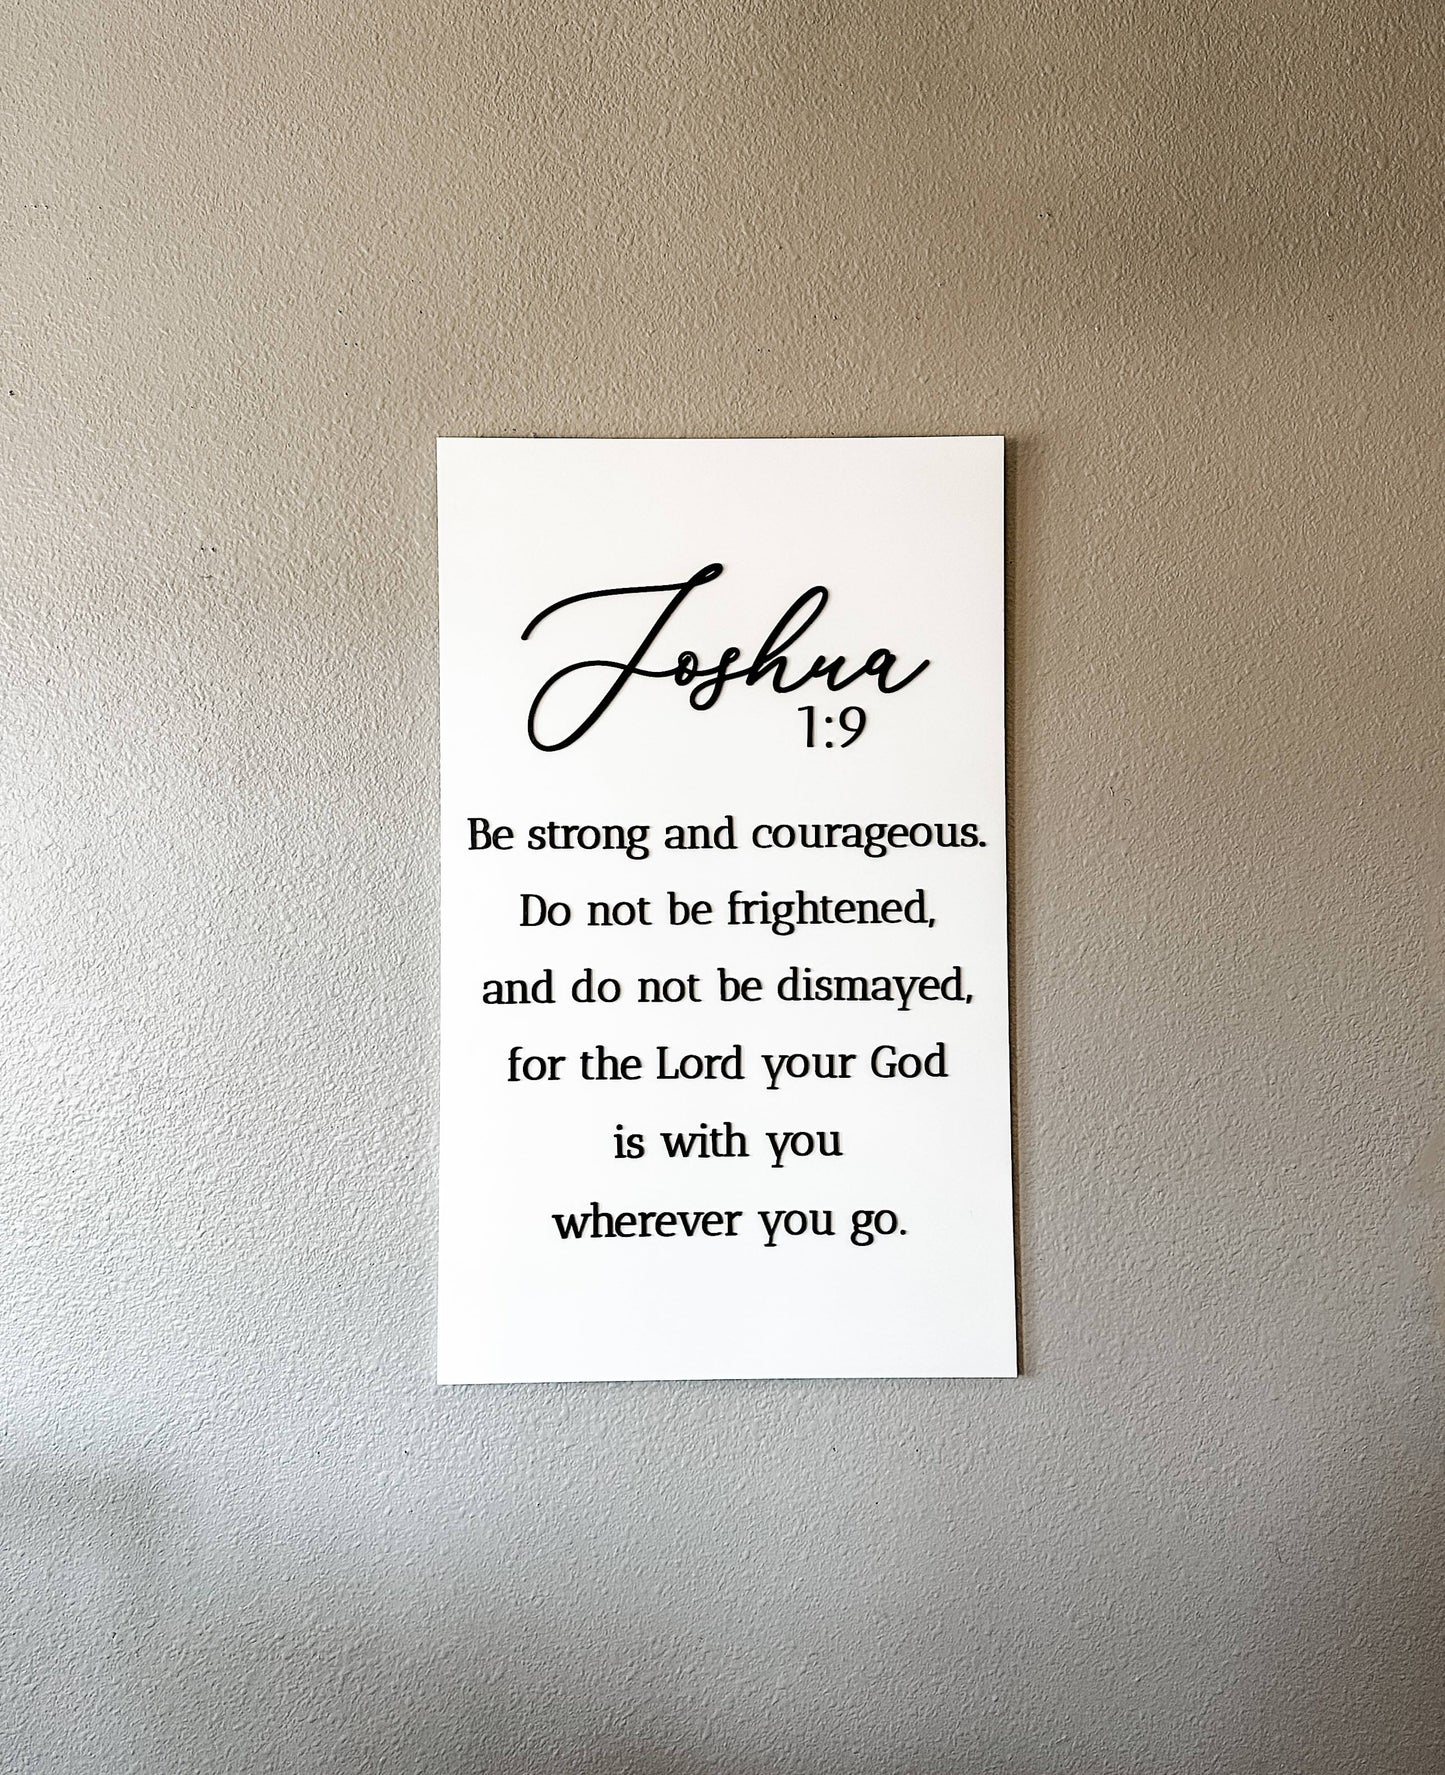 Joshua
1:9
Be strong and courageous.
Do not be frightened,
and do not be dismayed,
for the Lord your God
is with you
wherever you go.